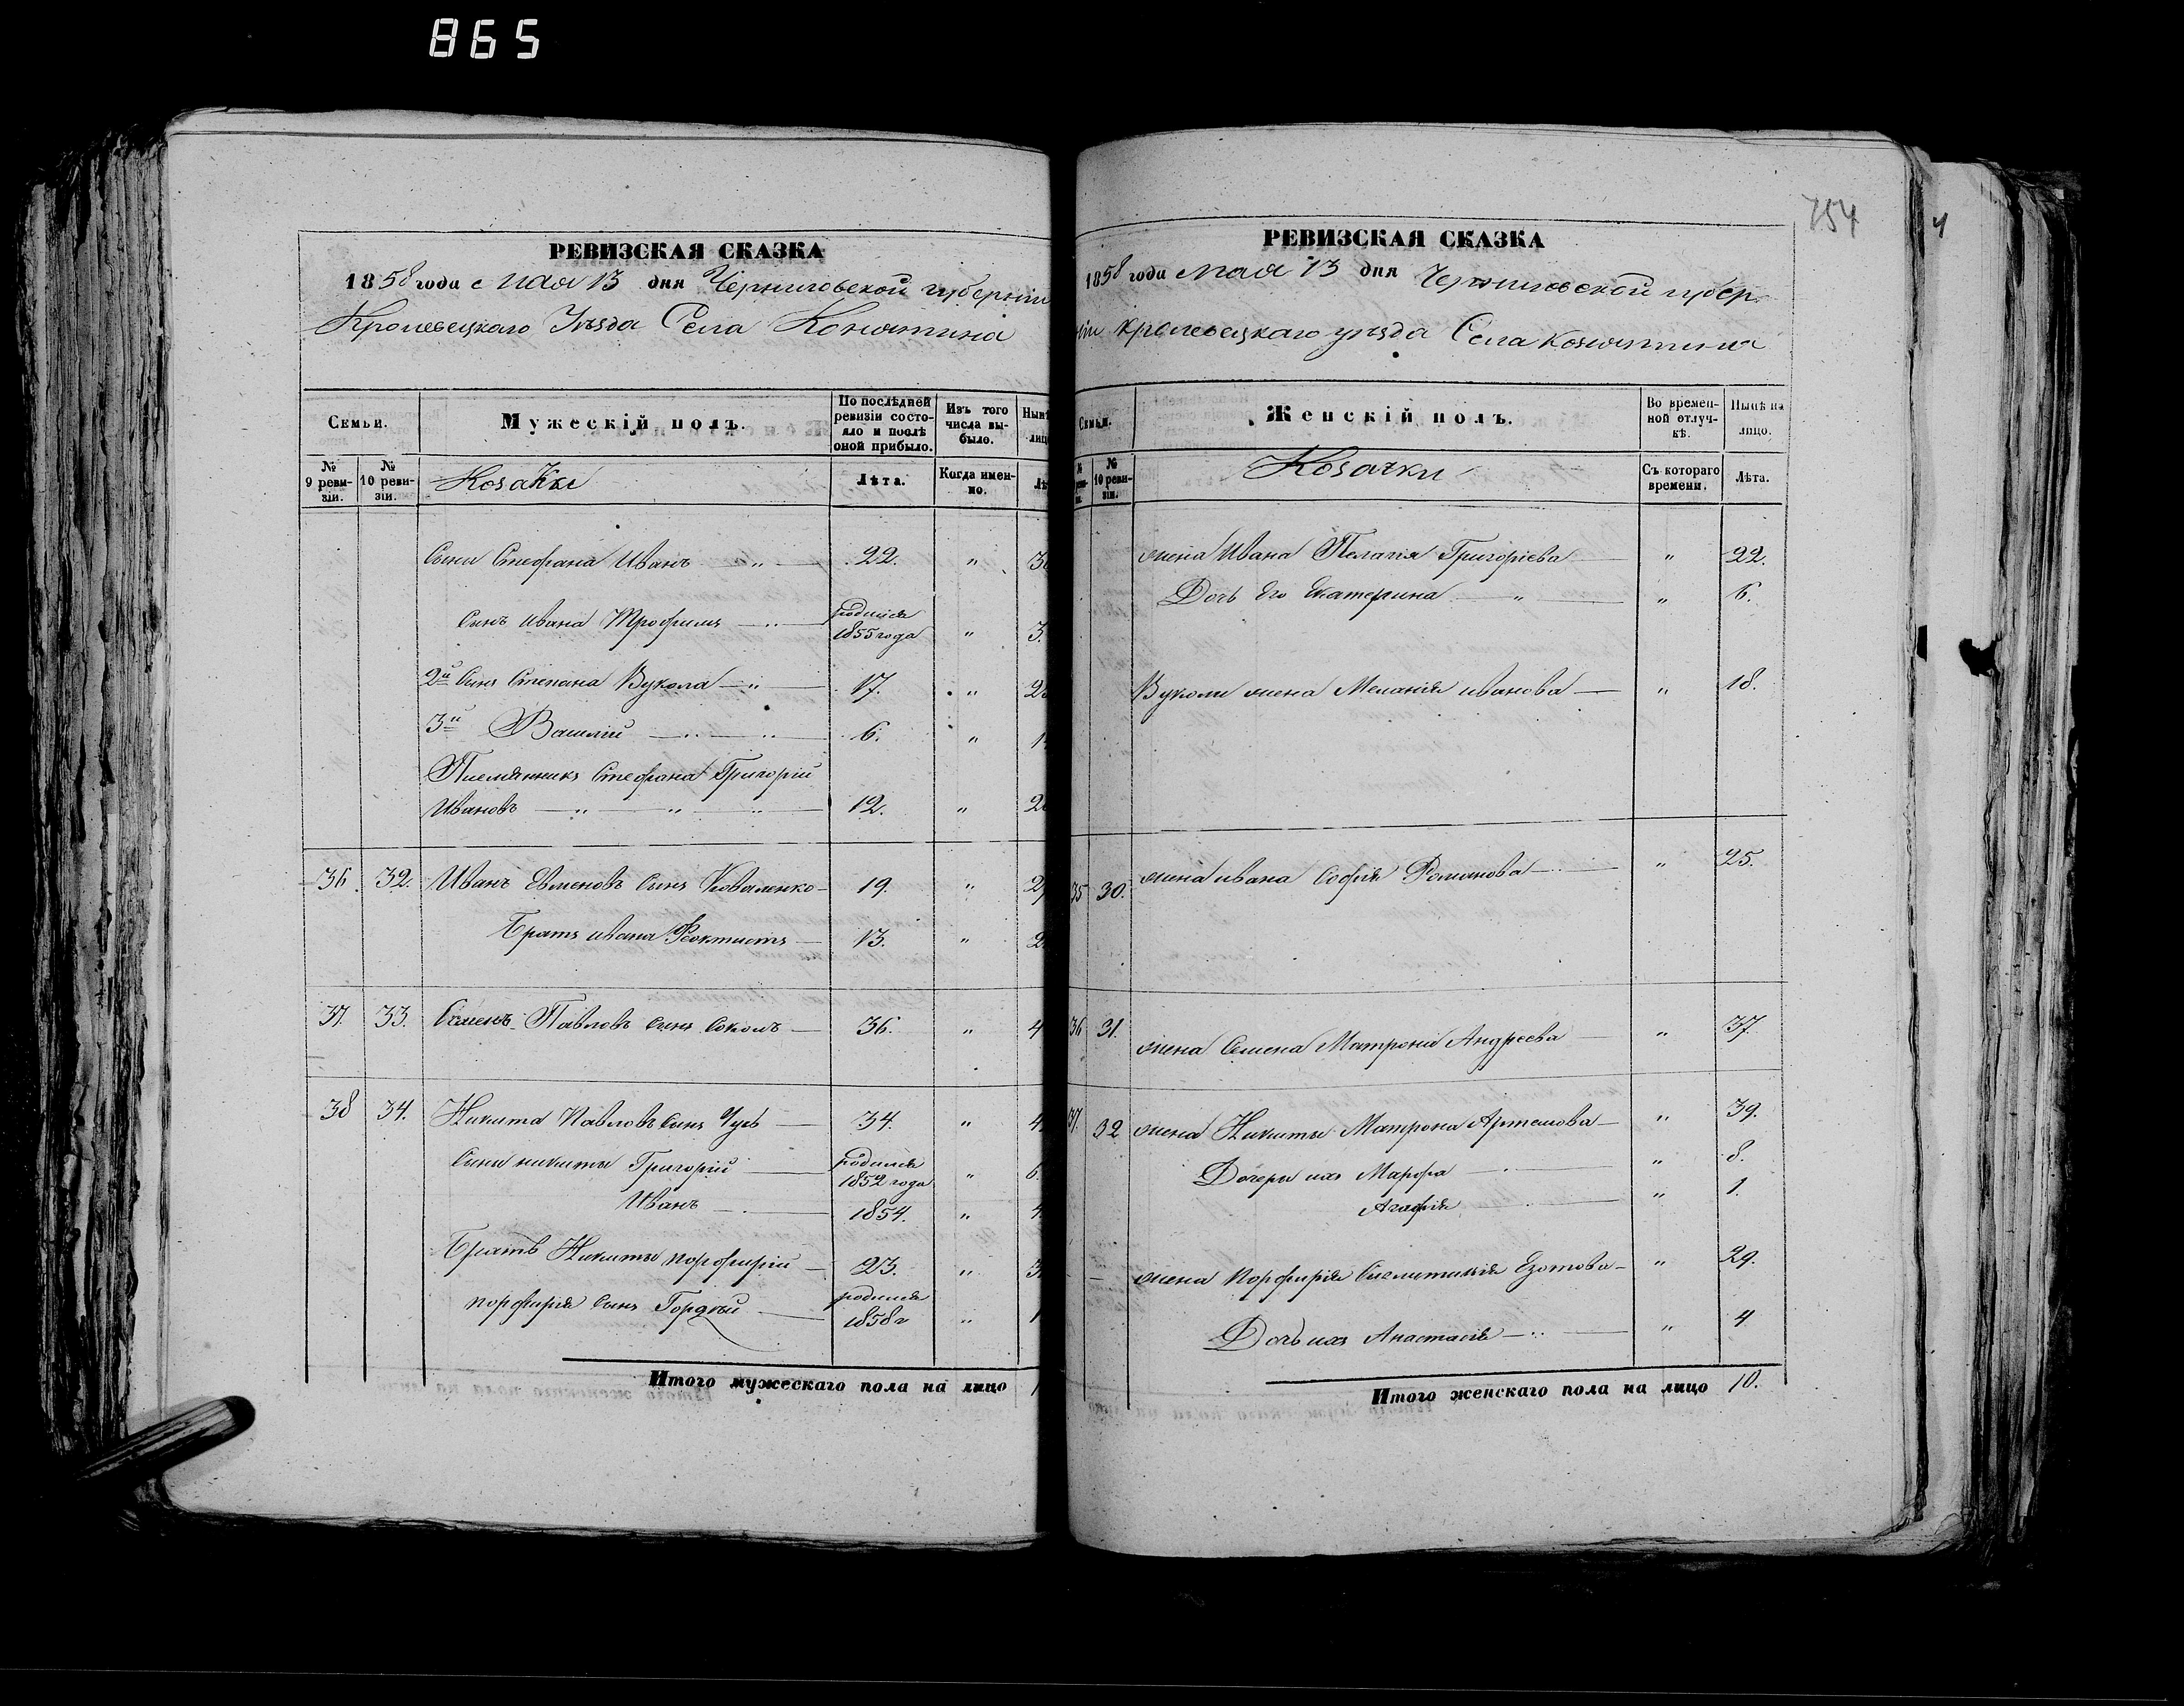 865
РЕВИЗСКАЯ СКАЗКА
1858 года мая 13 дня Черниговской губерніи
Кролевецкаго Уѣзда Села Конятина
Семьи.
Мужескій полъ.
По послѣдней ревизіи состояло и послѣ оной прибыло.
Изъ того числа выбыло.
Нынѣ
лицо
№ 9 ревизіи.
№ 10 ревизіи.
Козаки
Лѣта.
Когда именно.
Сыни Стефана Иванъ 22. "
Сынъ Ивана Трофимъ родился 1855 года " 3.
2й Сынъ Степана Вукола 17. "
3й Василій 6. "
Племянникъ Стефана Григорій
Ивановъ 12. "
36. 32. Иванъ Евменовъ Сынъ Коваленко 19. "
Братъ Ивана Феоктистъ 13. "
37. 33. Семенъ Павловъ Сынъ Соколъ 36. "
38 34. Никита Павловъ Сынъ Чубъ 34. "
Сыни Никиты Григорій родился 1852 года " 6.
Иванъ 1854. " 4.
Братъ Никиты Порфирій 23. "
Порфирія Сынъ Гордѣй родился 1858 г "
Итого мужескаго пола на лицо
754
РЕВИЗСКАЯ СКАЗКА
1858 года мая 13 дня Черниговской губер-
ніи Кролевецкаго уѣзда Села Конятина
Семьи.
Женскій полъ.
Во временной отлучкѣ.
Нынѣ на лицо.
№ 10 ревизіи.
Козачки
Съ котораго времени.
Лѣта.
жена Ивана Пелагія Григоріева " 22.
Дочь Его Екатерина " 6.
Вуколи жена Меланія Иванова " 18.
35 30. жена Ивана Софія Романова " 25.
36 31. жена Семена Матрона Андреева " 37.
37. 32 жена Никиты Матрона Артемова " 39.
Дочери ихъ Марфа " 8.
Агафія " 1.
жена Порфирія Изотова " 29.
Дочь ихъ Анастасія " 4
Итого женскаго пола на лицо 10.